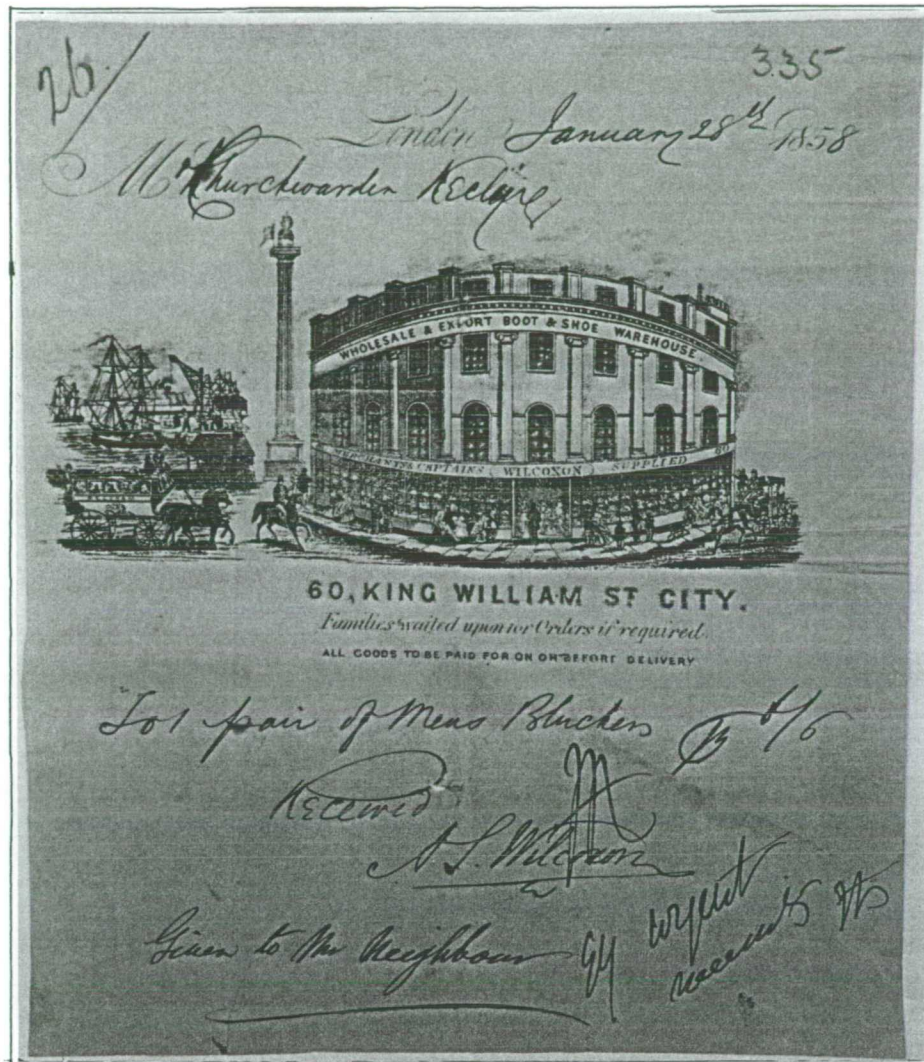 26/
335
London January 28th 1858
Mr Churchwarden
WHOLESALE & EXPORT BOOT & SHOE WAREHOUSE.
MERCHANTS & CAPTAINS WILCOXON SUPPLIED 60
60, KING WILLIAM ST CITY.
Families waited upon for Orders if required.
ALL GOODS TO BE PAID FOR ON OR BEFORE DELIVERY
To 1 pair of Mens Bluchers /6
Received
A S. Wilcoxon
Given to Mr Neighbour
urgent